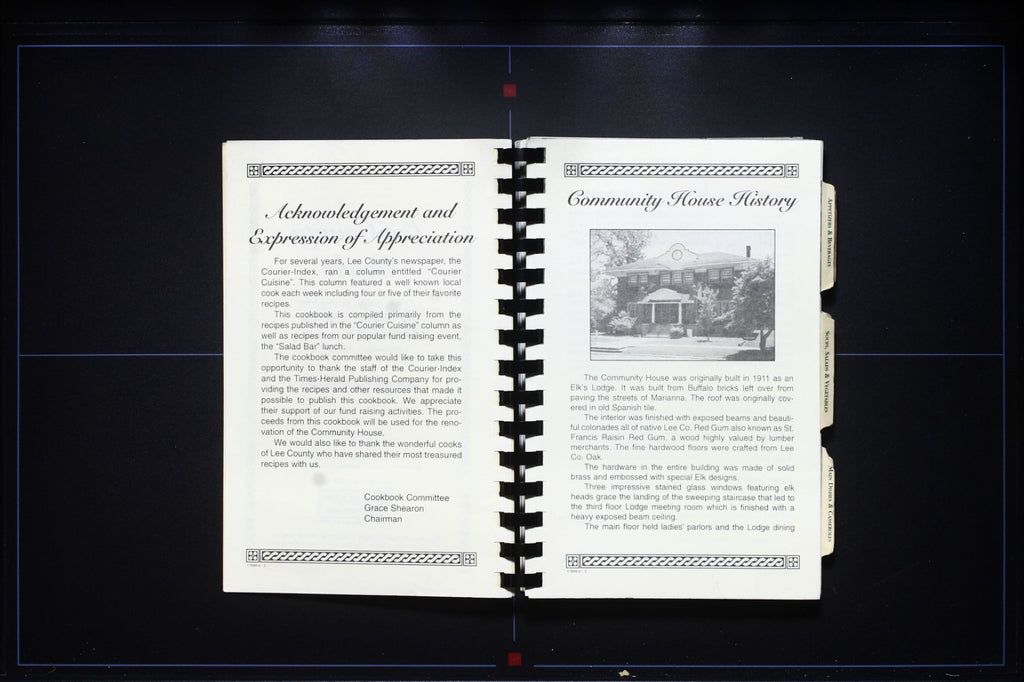 Acknowledgement and
Expression of Appreciation
For several years, Lee County's newspaper, the
Courier-Index, ran a column entitled "Courier
Cuisine". This column featured a well known local
cook each week including four or five of their favorite
recipes.
This cookbook is compiled primarily from the
recipes published in the "Courier Cuisine" column as
well as recipes from our popular fund raising event,
the "Salad Bar" lunch.
The cookbook committee would like to take this
opportunity to thank the staff of the Courier-Index
and the Times-Herald Publishing Company for pro-
viding the recipes and other resources that made it
possible to publish this cookbook. We appreciate
their support of our fund raising activities. The pro-
ceeds from this cookbook will be used for the reno-
vation of the Community House.
We would also like to thank the wonderful cooks
of Lee County who have shared their most treasured
recipes with us.
Cookbook Committee
Grace Shearon
Chairman
Community House History
The Community House was originally built in 1911 as an
Elk's Lodge. It was built from Buffalo bricks left over from
paving the streets of Marianna. The roof was originally cov-
ered in old Spanish tile.
The interior was finished with exposed beams and beauti-
ful colonades all of native Lee Co. Red Gum also known as St.
Francis Raisin Red Gum, a wood highly valued by lumber
merchants. The fine hardwood floors were crafted from Lee
Co. Oak.
The hardware in the entire building was made of solid
brass and embossed with special Elk designs.
Three impressive stained glass windows featuring elk
heads grace the landing of the sweeping staircase that led to
the third floor Lodge meeting room which is finished with a
heavy exposed beam ceiling.
The main floor held ladies' parlors and the Lodge dining
Appetizers & Beverages
Soups, Salads & Vegetables
Main Dishes & Casseroles